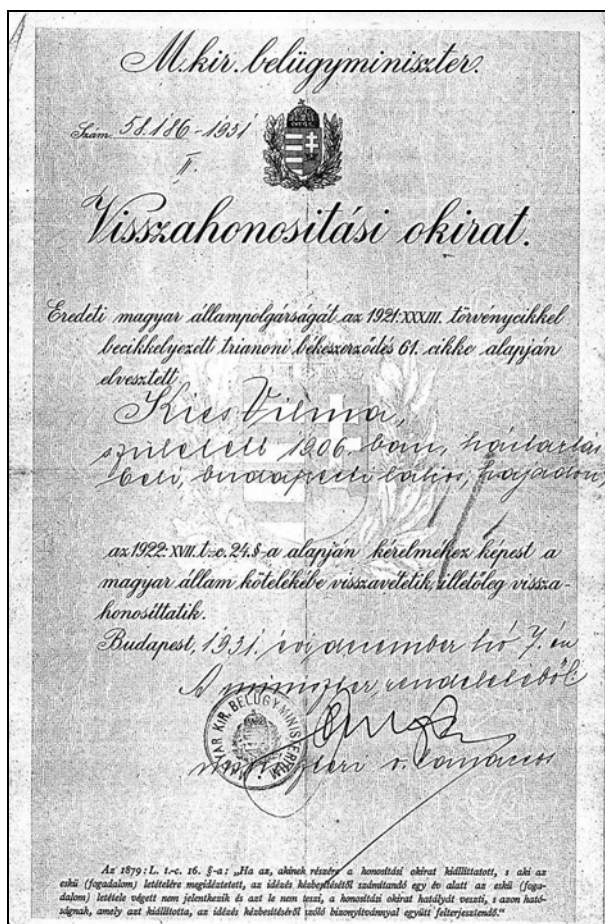 M. kir. belügyminiszter.
Szám 58.186-1931
II.
Visszahonositási okirat.
Eredeti magyar állampolgárságát az 1921:XXXIII. törvénycikkel
becikkelyezett trianoni békeszerződés 61. cikke alapján
elvesztett
Kies Vilma,
született 1906.-ban, háztartás
beli, budapesti lakos, hajadon,
az 1922:XVII. t.-c. 24. §-a alapján kérelméhez képest a
magyar állam kötelékébe visszavétetik, illetőleg vissza-
honosittatik.
Budapest, 1931. évi december hó 7.én
A miniszter rendeletéből:
MAGYAR KIR. BELÜGYMINISZTERIUM
miniszteri o. tanácsos
Az 1879: L. t.-c. 16. §-a: „Ha az, akinek részére a honositási okirat kiállittatott, s aki az
eskü (fogadalom) letételére megidéztetett, az idézés kézbesitésétől számitandó egy év alatt az eskü (foga-
dalom) letétele végett nem jelentkezik és azt le nem teszi, a honositási okirat hatályát veszti, s azon ható-
ságnak, amely azt kiállitotta, az idézés kézbesitéséről szóló bizonyitvánnyal együtt felterjesztendő.“